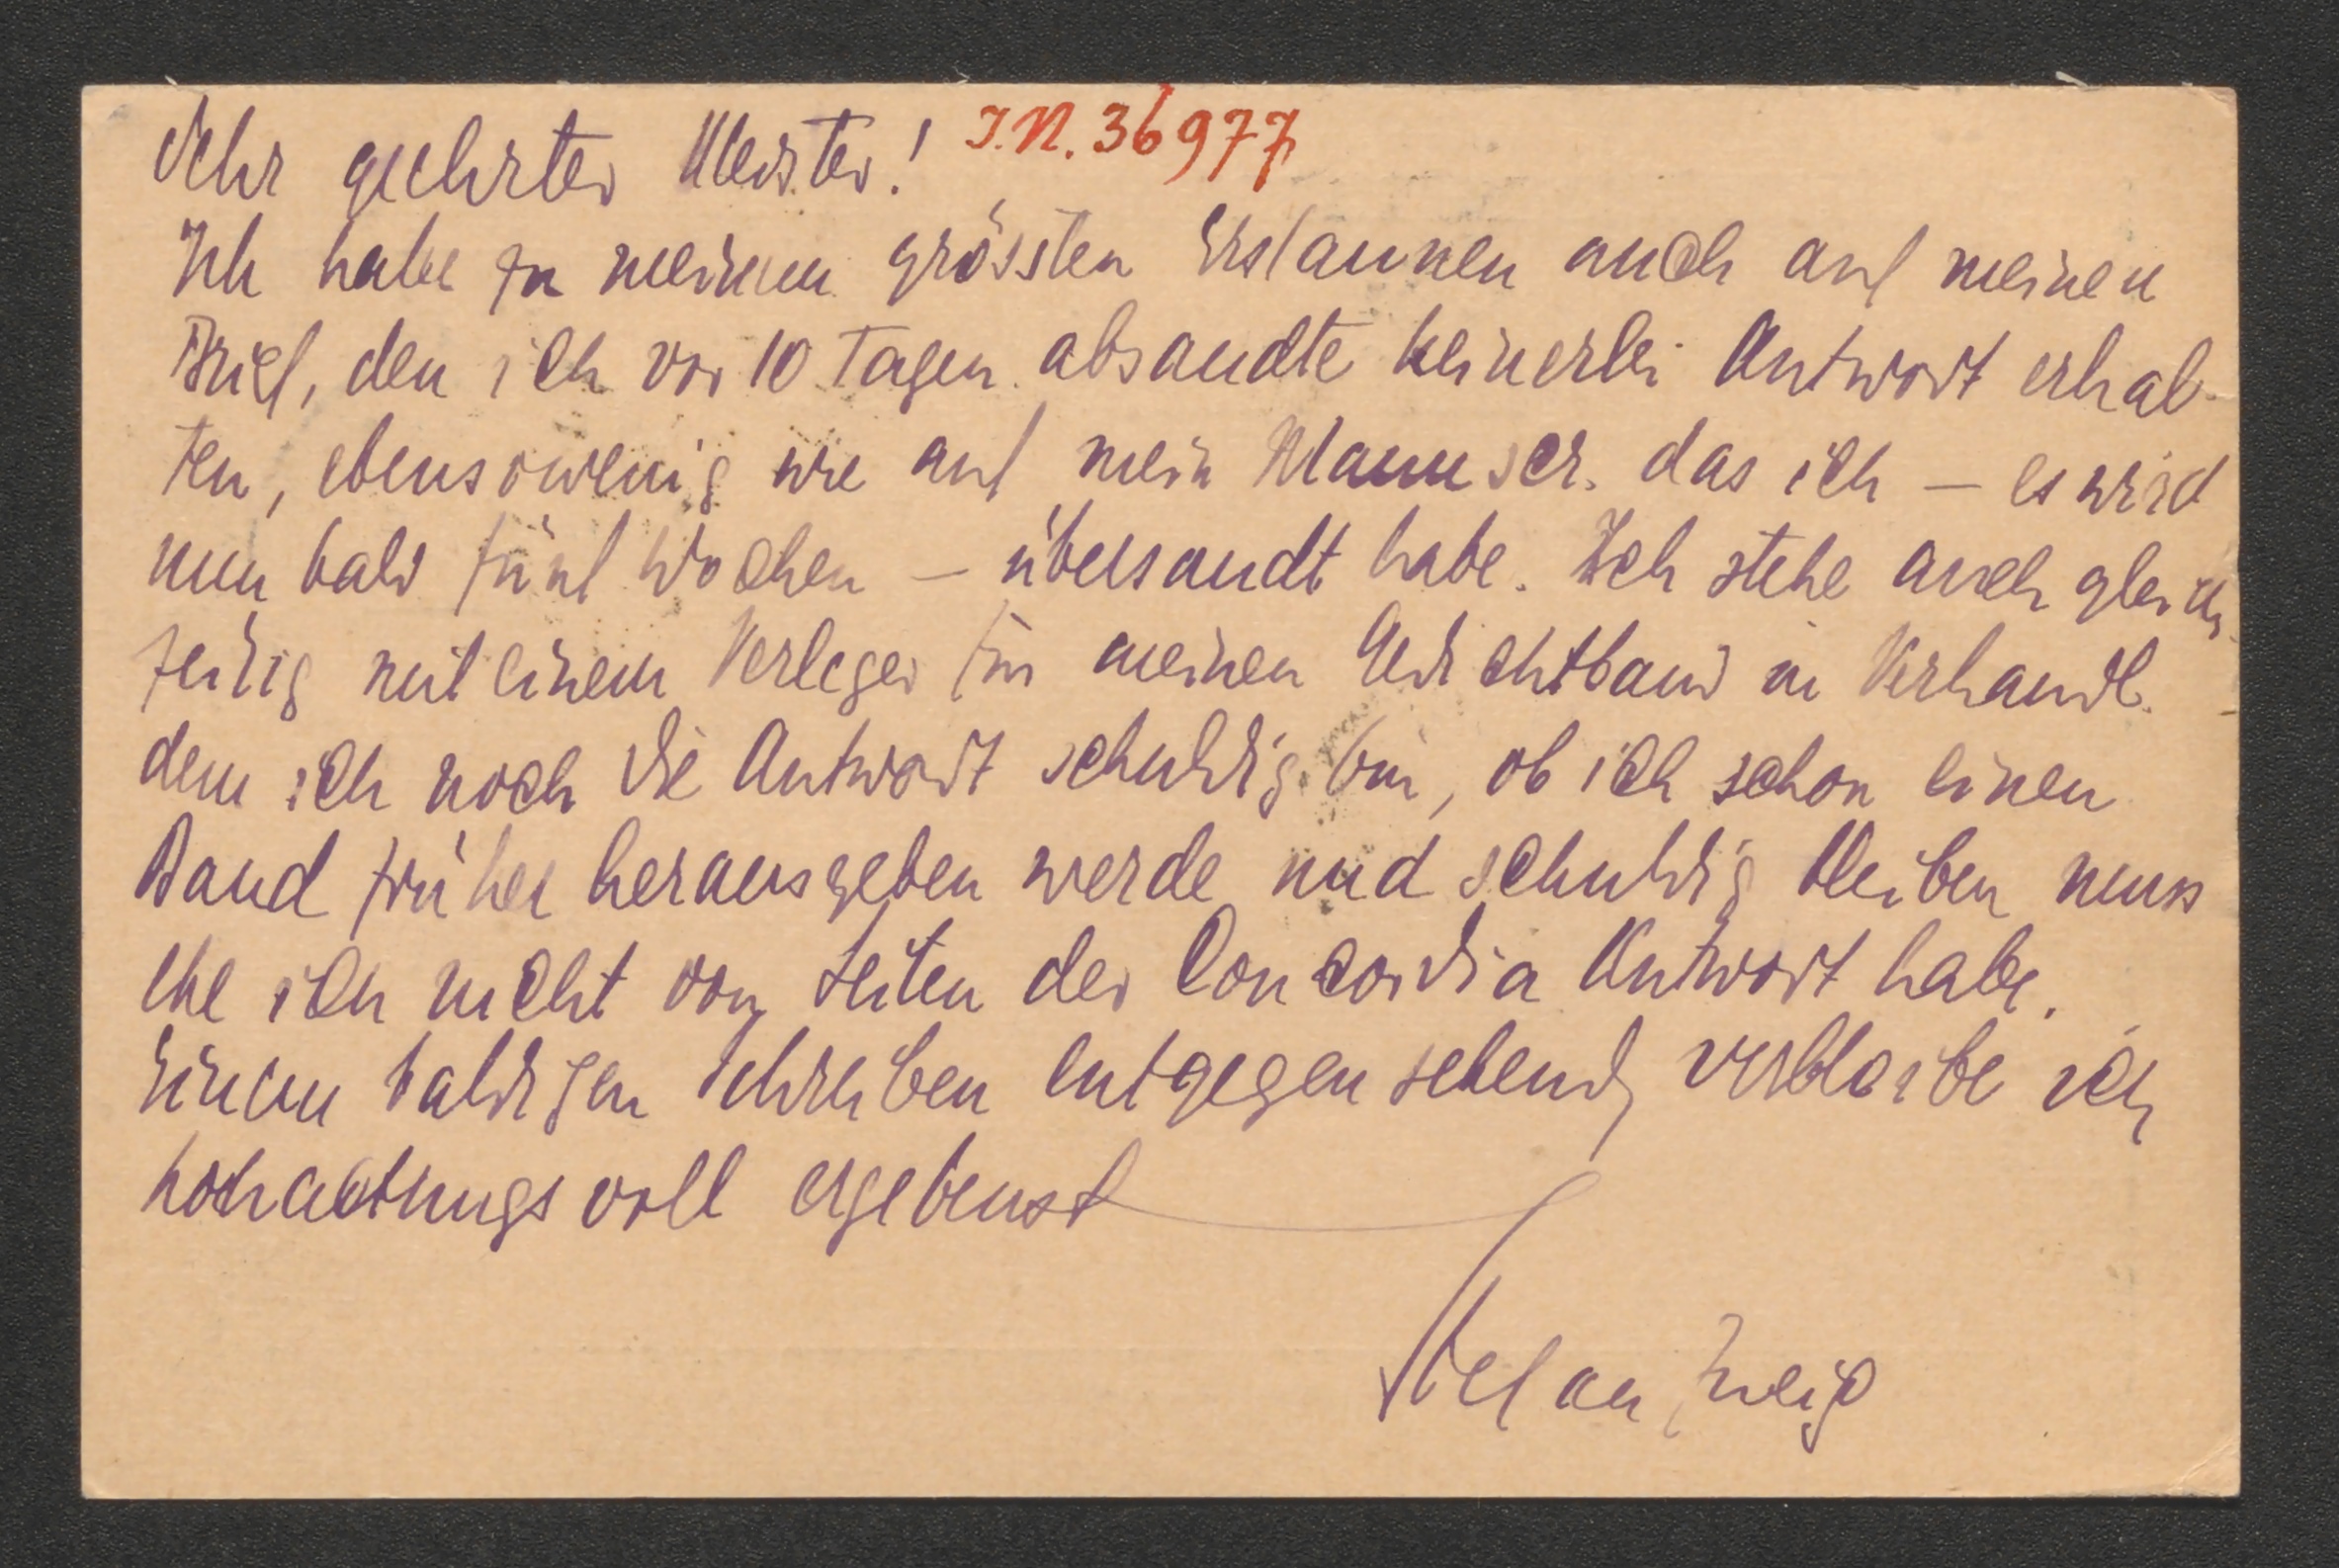 Sehr geehrter Meister! I.N. 36977
Ich habe zu meinem grössten Erstaunen auch auf meinen
Brief, den ich vor 10 Tagen absandte keinerlei Antwort erhal-
ten, ebensowenig wie auf mein Manuscr. das ich – es wird
nun bald fünf Wochen – übersandt habe. Ich stehe auch gleich-
zeitig mit einem Verleger für meinen Gedichtband in Verhandl.
dem ich noch die Antwort schuldig bin, ob ich schon einen
Band früher herausgeben werde und schuldig bleiben muss
ehe ich nicht von Seiten der Concordia Antwort habe.
Einem baldigen Schreiben entgegensehend, verbleibe ich
hochachtungsvoll ergebenst
Stefan Zweig